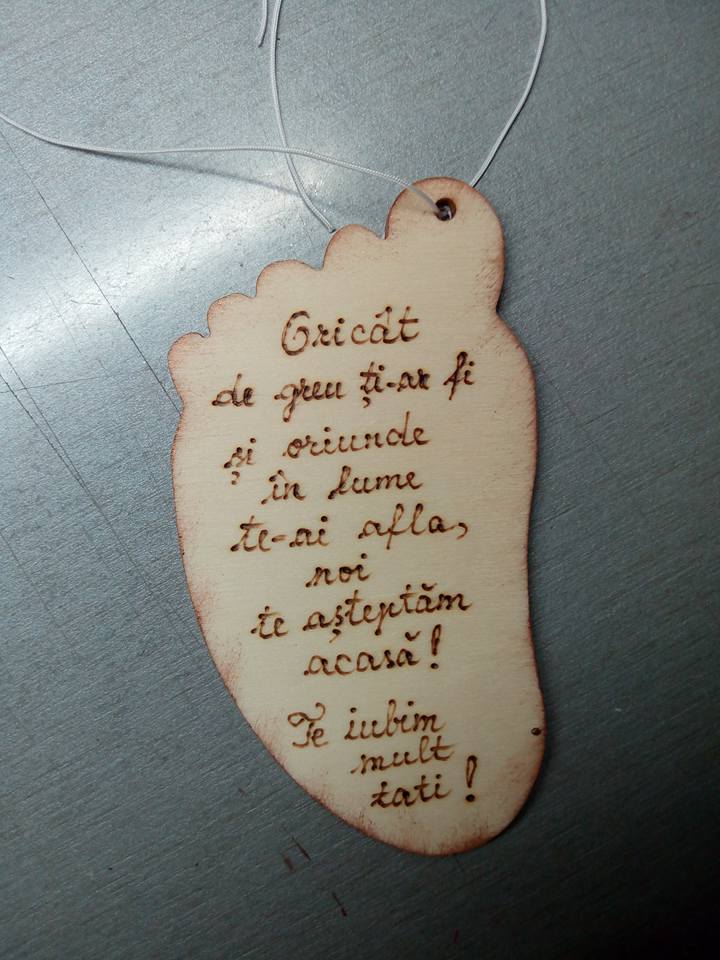 Oricât
de greu ți-ar fi
și oriunde
în lume
te-ai afla,
noi
te așteptăm
acasă!
Te iubim
mult
tati!